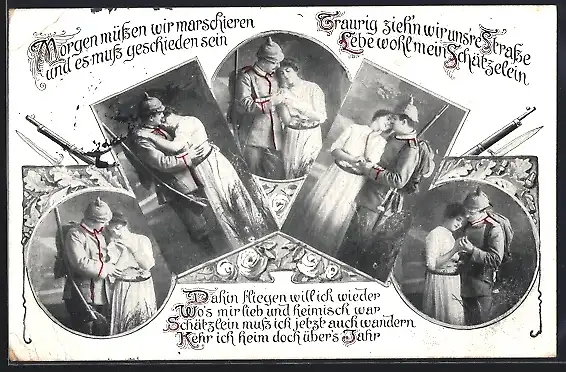 Morgen müßen wir marschieren
und es muß geschieden sein
Traurig zieh'n wir unsre Straße
Lebe wohl mein Schätzelein
Dahin fliegen will ich wieder
Wo's mir lieb und heimisch war
Schätzlein muß ich jetzt auch wandern
Kehr ich heim doch über's Jahr